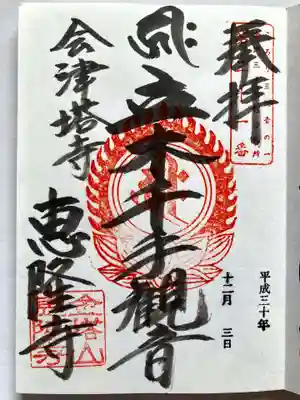 奉拝
平成三十年
十二月 三日
立木千手観音
会津塔寺
恵隆寺